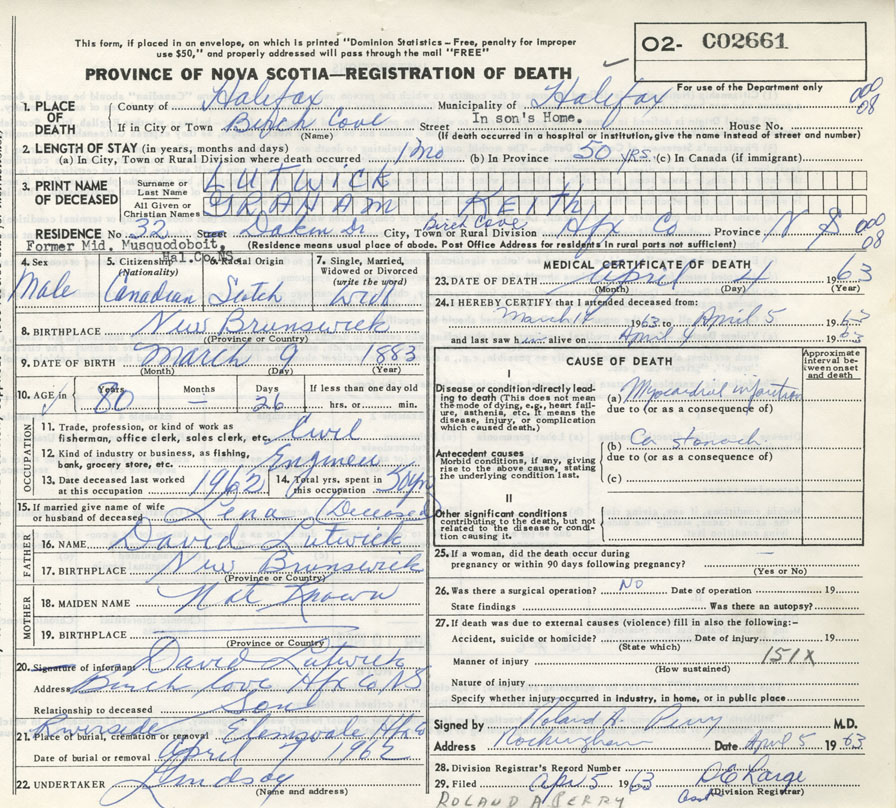 This form, if placed in an envelope, on which is printed "Dominion Statistics – Free, penalty for improper
use $50," and properly addressed will pass through the mail "FREE"
O2- C02661
PROVINCE OF NOVA SCOTIA—REGISTRATION OF DEATH
For use of the Department only
1. PLACE OF DEATH County of Halifax Municipality of Halifax 000 08
In son's Home.
If in City or Town Birch Cove (Name) Street House No.
(If death occurred in a hospital or institution, give the name instead of street and number)
2. LENGTH OF STAY (in years, months and days)
(a) In City, Town or Rural Division where death occurred 1 mo (b) In Province 50 yrs. (c) In Canada (if immigrant)
3. PRINT NAME OF DECEASED Surname or Last Name LUTWICK
All Given or Christian Names GRAHAM KEITH
RESIDENCE No. 32 Street Dakin Dr City, Town or Rural Division Birch Cove Hfx Co Province N S 000 08
Former Mid. Musquodoboit, Hal.Co.NS
(Residence means usual place of abode. Post Office Address for residents in rural parts not sufficient)
4. Sex Male
5. Citizenship (Nationality) Canadian
6. Racial Origin Scotch
7. Single, Married, Widowed or Divorced (write the word) Wid
8. BIRTHPLACE New Brunswick
(Province or Country)
9. DATE OF BIRTH March 9 1883
(Month) (Day) (Year)
10. AGE in Years 80 Months — Days 26 If less than one day old
hrs. or min.
OCCUPATION
11. Trade, profession, or kind of work as
fisherman, office clerk, sales clerk, etc. Civil
12. Kind of industry or business, as fishing,
bank, grocery store, etc. Engineer
13. Date deceased last worked
at this occupation 1962 14. Total yrs. spent in
this occupation 50 yrs
15. If married give name of wife
or husband of deceased Lena (Deceased)
FATHER
16. NAME David Lutwick
17. BIRTHPLACE New Brunswick
(Province or Country)
MOTHER
18. MAIDEN NAME Not Known
19. BIRTHPLACE
(Province or Country)
20. Signature of informant David Lutwick
Address Birch Cove Hfx Co NS
Relationship to deceased Son
21. Place of burial, cremation or removal Riverside Elmsvale Hfx Co
Date of burial or removal April 7 1962
22. UNDERTAKER Lindsay
(Name and address)
MEDICAL CERTIFICATE OF DEATH
23. DATE OF DEATH April 4 1963
(Month) (Day) (Year)
24. I HEREBY CERTIFY that I attended deceased from:
March 1963 to April 5 1963
and last saw him alive on April 4 1963
CAUSE OF DEATH
Approximate interval between onset and death
I
Disease or condition directly leading to death (This does not mean the mode of dying, e.g., heart failure, asthenia, etc. It means the disease, injury, or complication which caused death.)
(a) Myocardial infarction
due to (or as a consequence of)
Antecedent causes
Morbid conditions, if any, giving rise to the above cause, stating the underlying condition last.
(b) Ca Stomach
due to (or as a consequence of)
(c)
II
Other significant conditions
contributing to the death, but not related to the disease or condition causing it.
25. If a woman, did the death occur during
pregnancy or within 90 days following pregnancy? —
(Yes or No)
26. Was there a surgical operation? NO Date of operation 19
State findings Was there an autopsy?
27. If death was due to external causes (violence) fill in also the following:–
Accident, suicide or homicide? Date of injury 19
(State which)
Manner of injury 151X
(How sustained)
Nature of injury
Specify whether injury occurred in industry, in home, or in public place
Signed by Roland A. Perry M.D.
Address Rockingham Date April 5 1963
28. Division Registrar's Record Number
29. Filed Apr 5 1963
(Division Registrar)